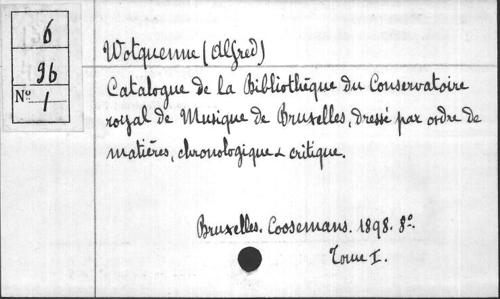 6
96
No 1
Wotquenne (Alfred)
Catalogue de la Bibliothèque du Conservatoire
royal de Musique de Bruxelles, dressé par ordre de
matières, chronologique & critique.
Bruxelles. Coosemans. 1898. 8o.
Tome I.